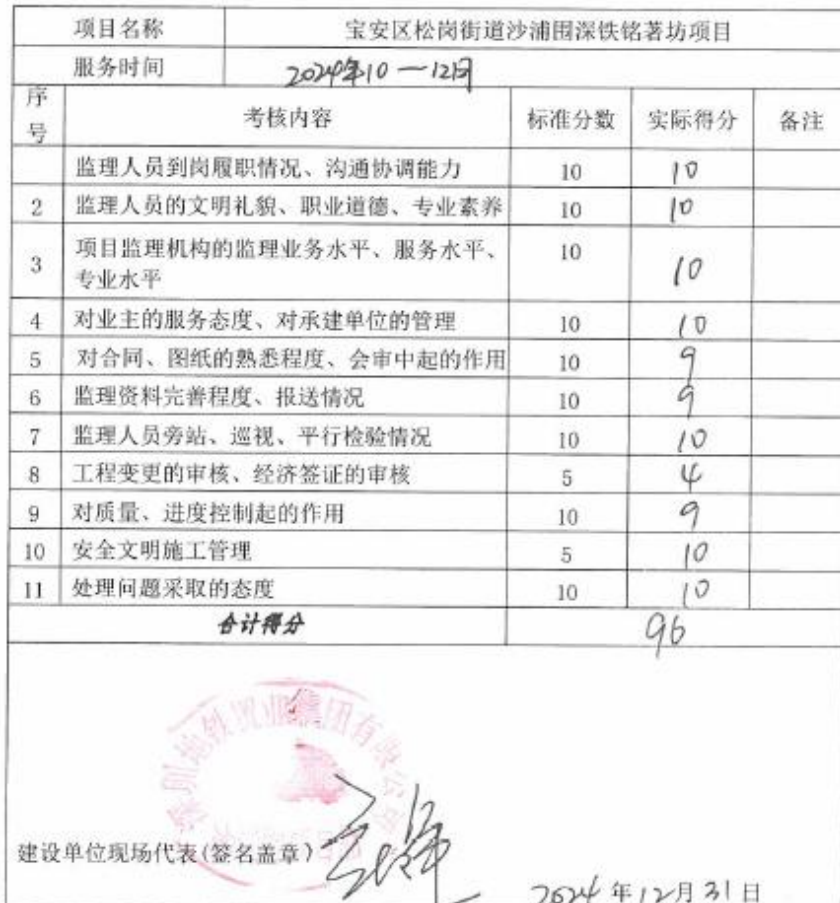 项目名称 宝安区松岗街道沙浦围深铁铭著坊项目
服务时间 2024年10一12月
序号 考核内容 标准分数 实际得分 备注
监理人员到岗履职情况、沟通协调能力 10 10
2 监理人员的文明礼貌、职业道德、专业素养 10 10
3 项目监理机构的监理业务水平、服务水平、 10 10
专业水平
4 对业主的服务态度、对承建单位的管理 10 10
5 对合同、图纸的熟悉程度、会审中起的作用 10 9
6 监理资料完善程度、报送情况 10 9
7 监理人员旁站、巡视、平行检验情况 10 10
8 工程变更的审核、经济签证的审核 5 4
9 对质量、进度控制起的作用 10 9
10 安全文明施工管理 5 10
11 处理问题采取的态度 10 10
合计得分 96
深圳地铁置业集团有限公司
建设单位现场代表(签名盖章)
2024年12月31日